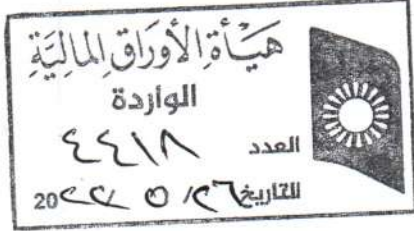 هيأة الأوراق المالية
الواردة
العدد ٤٤١٨
التاريخ ٢٦/ ٥ /٢٢ 20